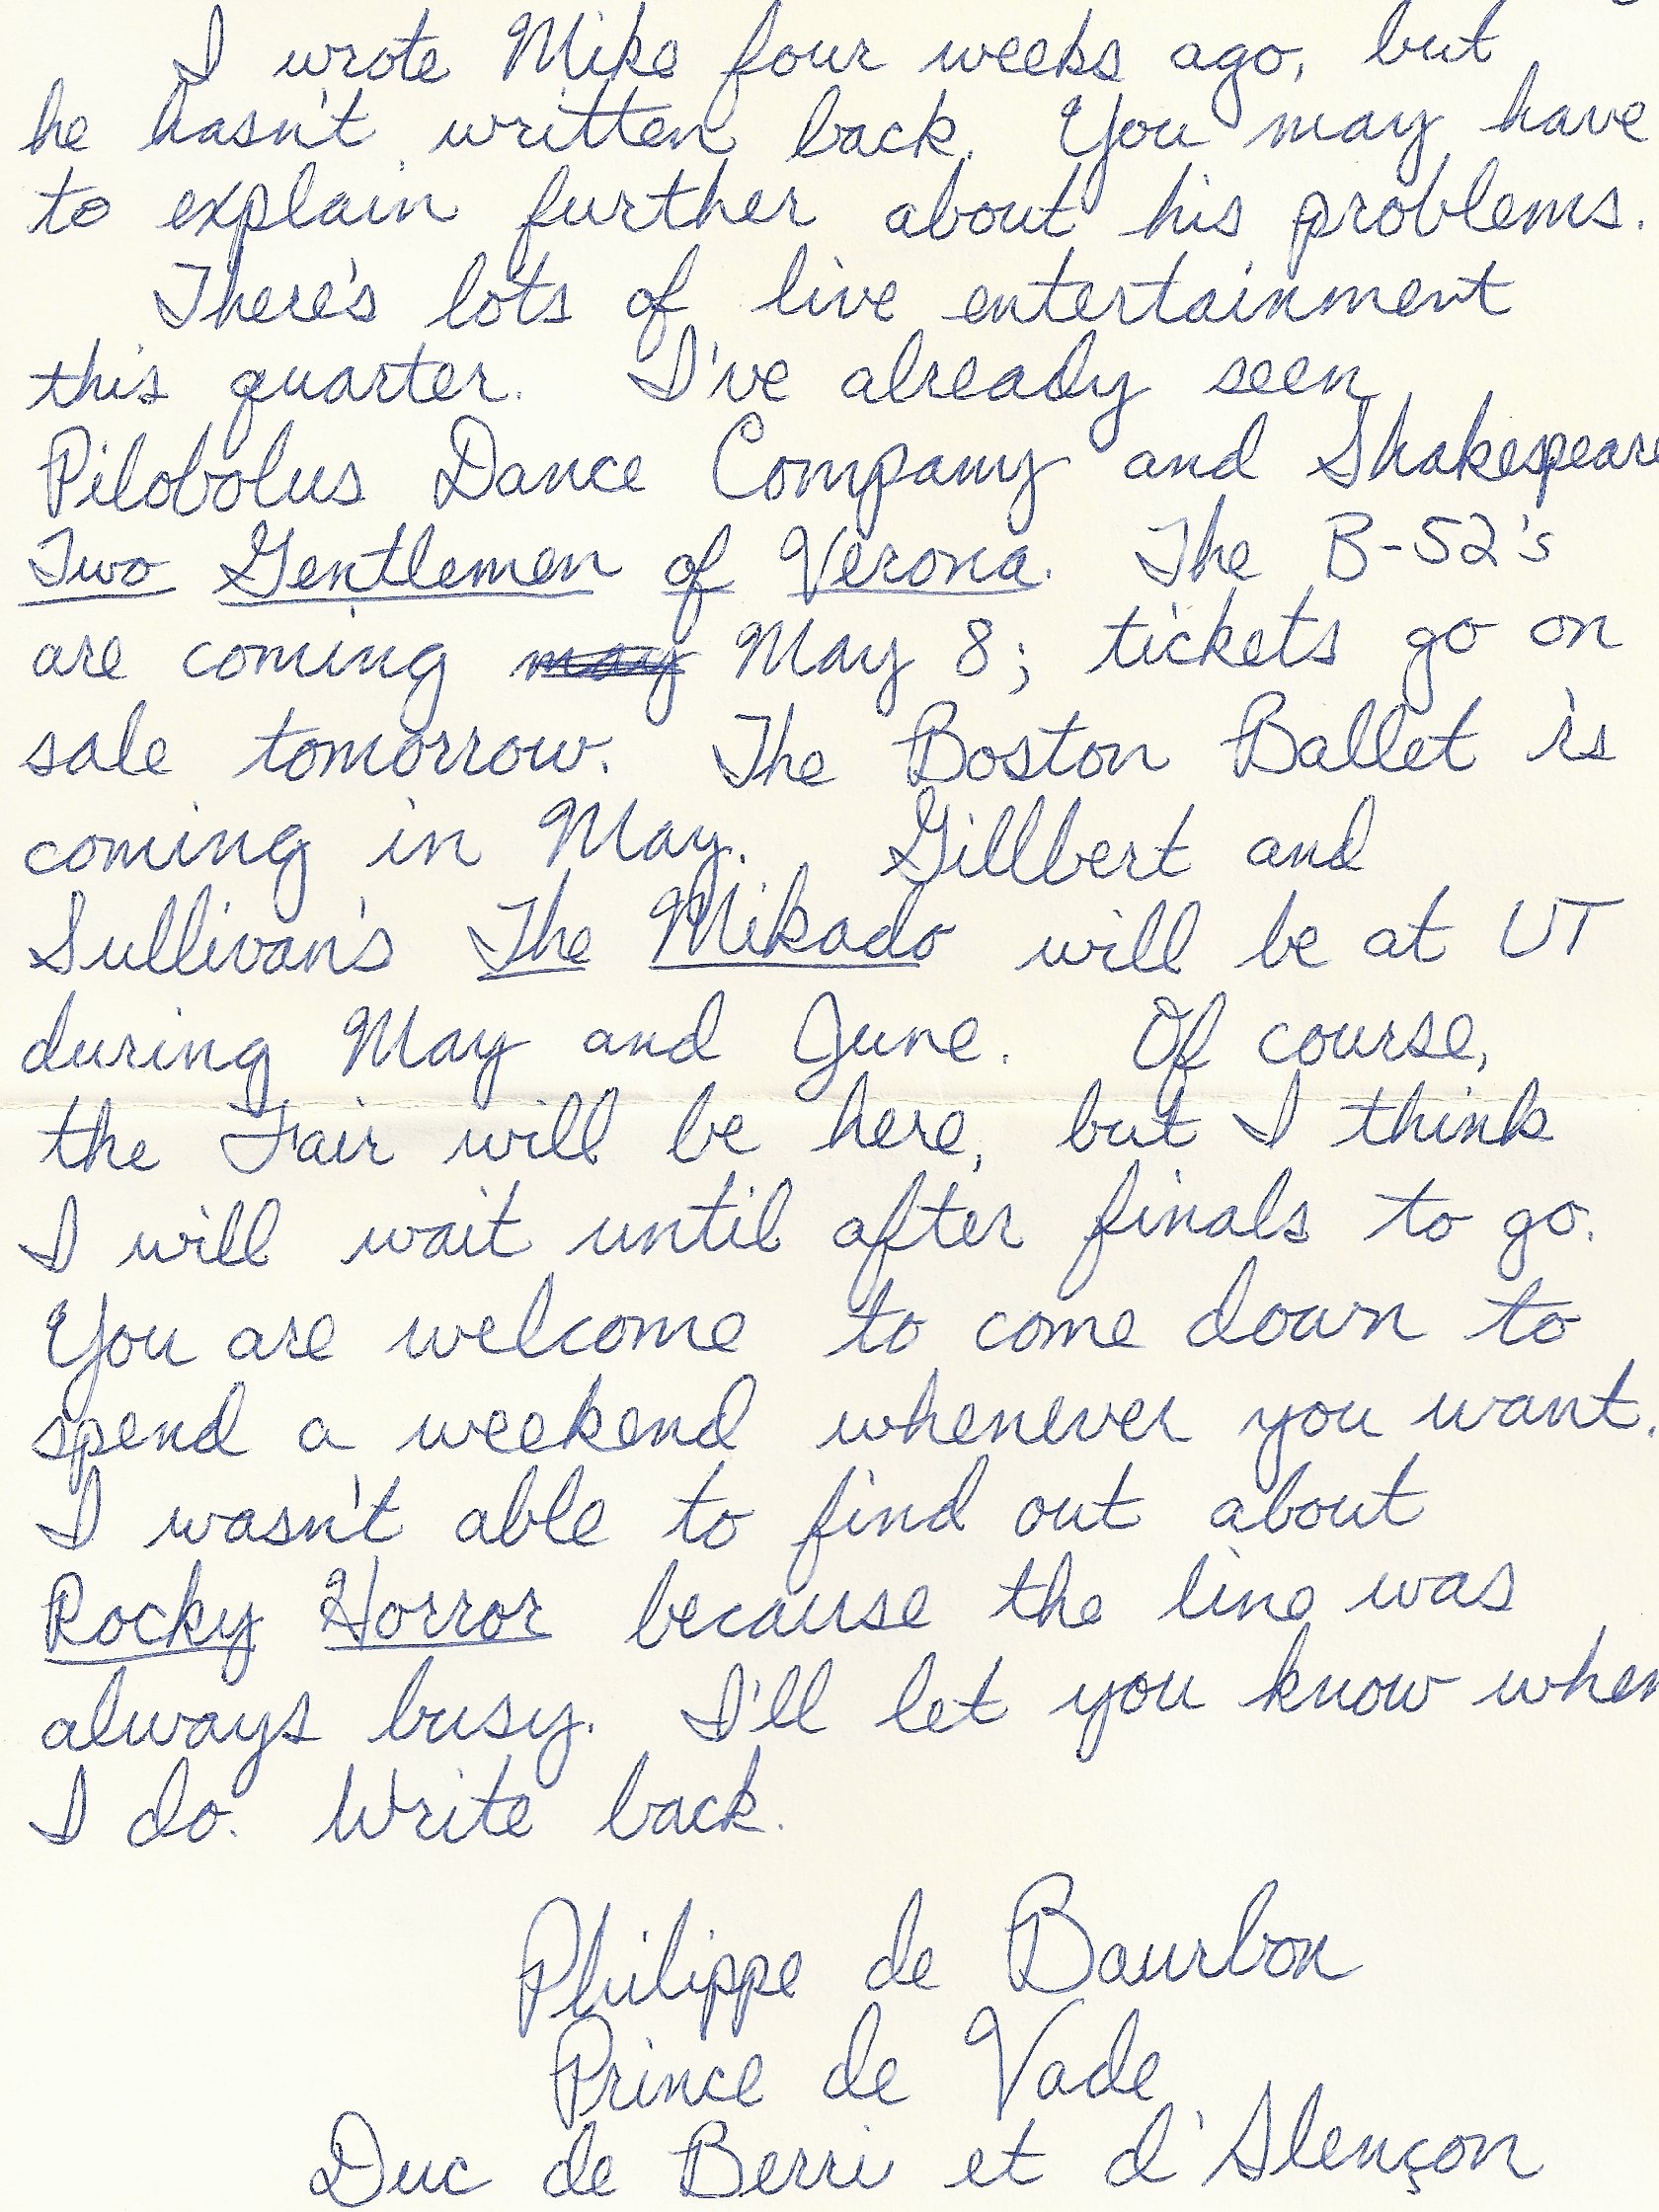 I wrote Mike four weeks ago, but
he hasn't written back. You may have
to explain further about his problems.
There's lots of live entertainment
this quarter. I've already seen
Pilobolus Dance Company and Shakespeare
Two Gentlemen of Verona. The B-52's
are coming may May 8; tickets go on
sale tomorrow. The Boston Ballet is
coming in May. Gillbert and
Sullivan's The Mikado will be at UT
during May and June. Of course,
the Fair will be here, but I think
I will wait until after finals to go.
You are welcome to come down to
spend a weekend whenever you want.
I wasn't able to find out about
Rocky Horror because the line was
always busy. I'll let you know when
I do. Write back.
Philippe de Bourbon
Prince de Vade
Duc de Berri et d'Alençon